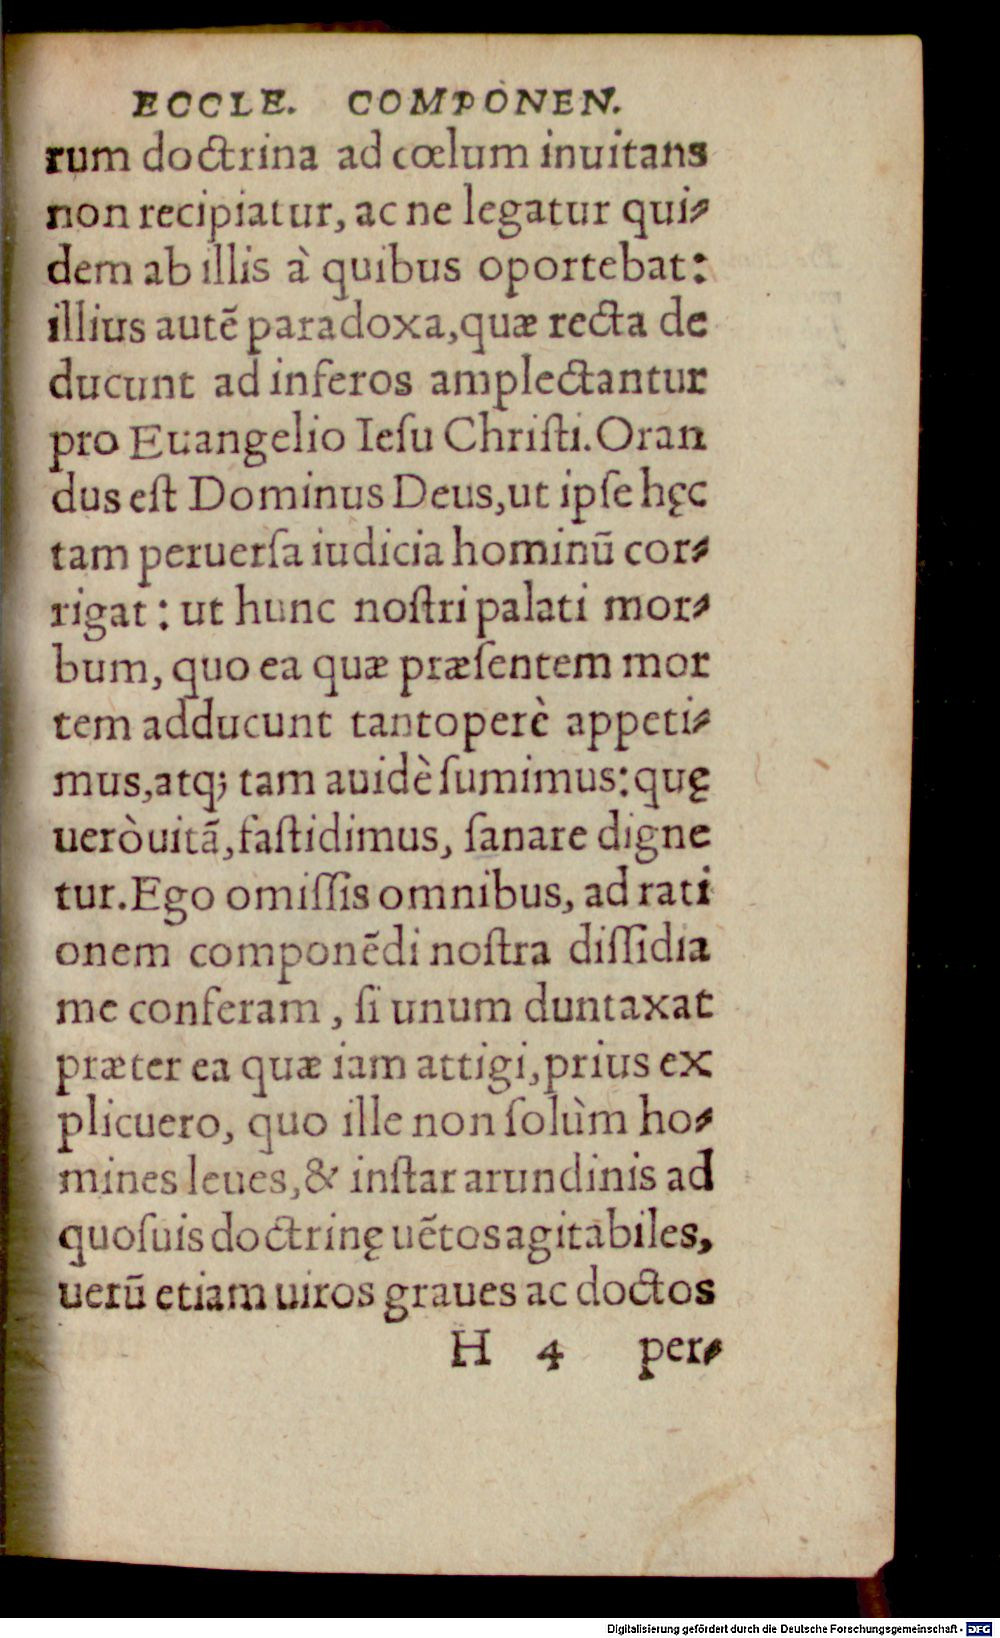 ECCLE. COMPONEN.
rum doctrina ad cœlum inuitans
non recipiatur, ac ne legatur qui⸗
dem ab illis à quibus oportebat:
illius autẽ paradoxa, quæ recta de
ducunt ad inferos amplectantur
pro Euangelio Ieſu Chriſti. Oran
dus eſt Dominus Deus, ut ipſe hęc
tam peruerſa iudicia hominũ cor⸗
rigat: ut hunc noſtri palati mor⸗
bum, quo ea quæ præſentem mor
tem adducunt tantoperè appeti⸗
mus, atq; tam auidè ſumimus: quę
uerò uitã, faſtidimus, ſanare digne
tur. Ego omiſſis omnibus, ad rati
onem componẽdi noſtra diſſidia
me conferam, ſi unum duntaxat
præter ea quæ iam attigi, prius ex
plicuero, quo ille non ſolùm ho⸗
mines leues, & inſtar arundinis ad
quoſuis doctrinę uẽtos agitabiles,
uerũ etiam uiros graues ac doctos
H 4 per⸗
Digitalisierung gefördert durch die Deutsche Forschungsgemeinschaft - DFG